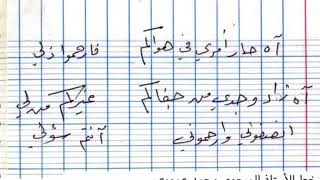 آه حار أمري في هواكم فارحموا ذلي
آه زاد وجدي من جفاكم غيركم من لي
انصفوني وارحموني أنتم سؤلي